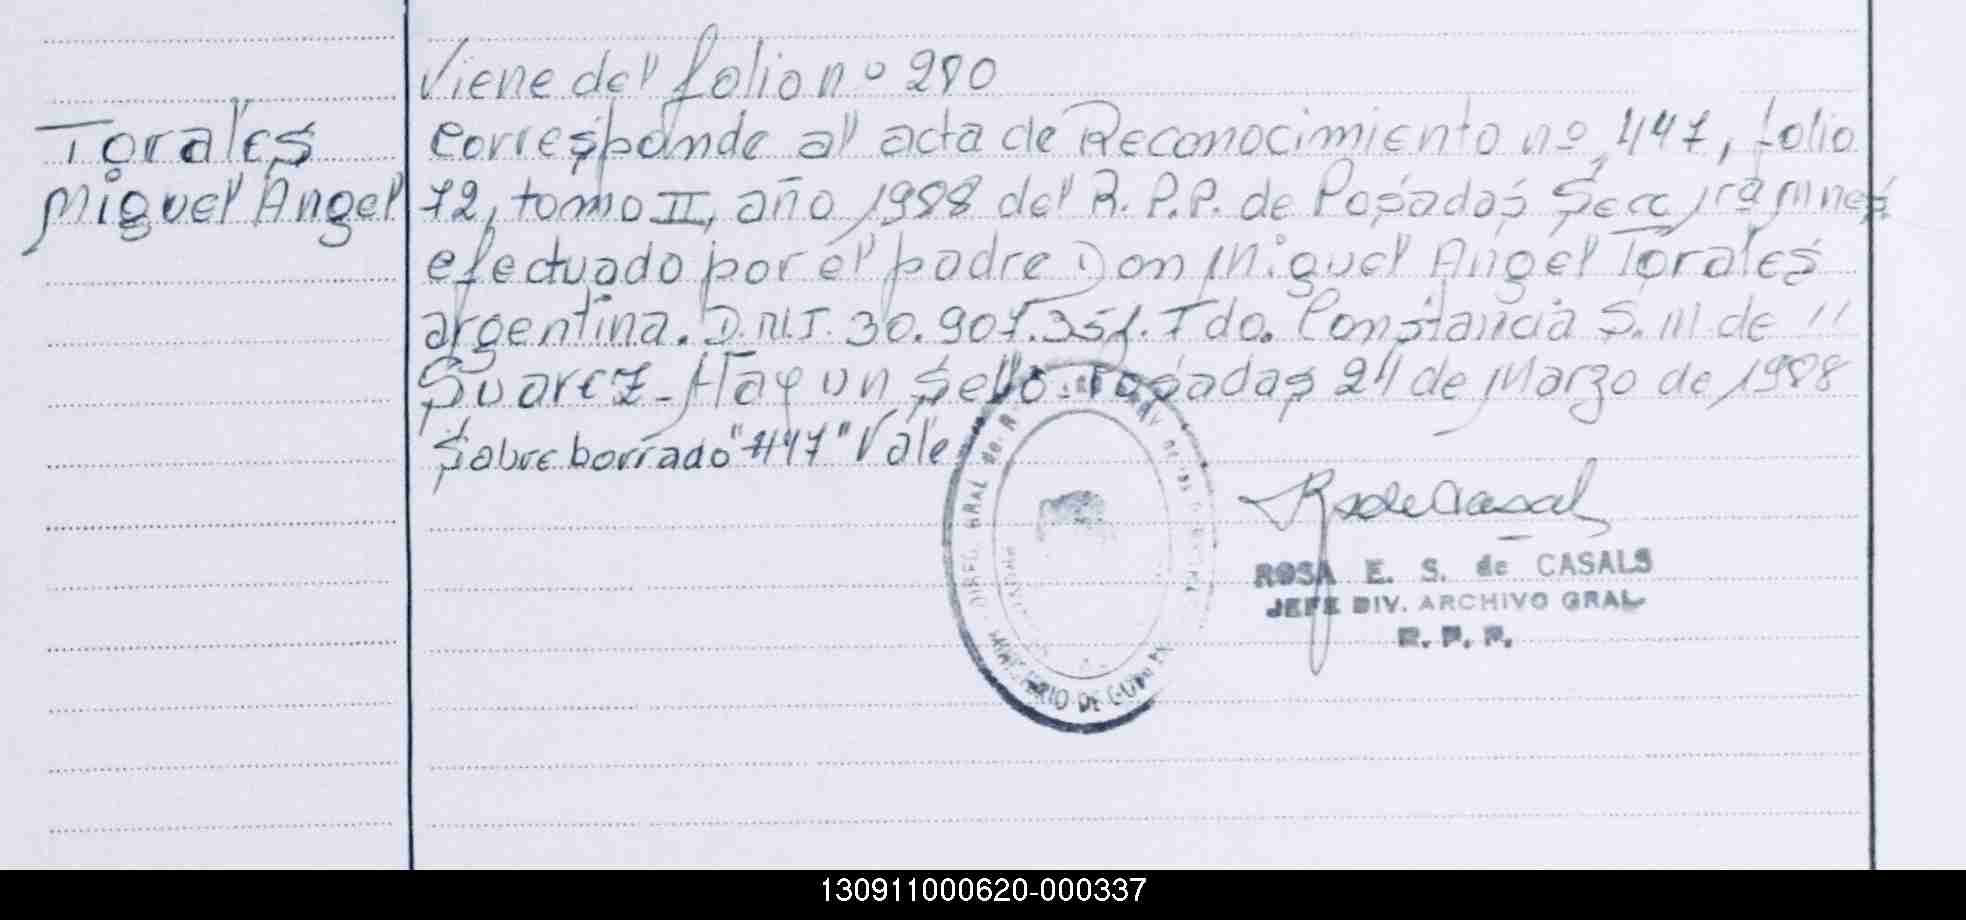 Viene del folio nº 280
Torales
Miguel Angel
corresponde al acta de Reconocimiento nº 447, folio
72, tomo II, año 1988 del R.P.P. de Posadas Secc 1ra Mnes
efectuado por el padre Don Miguel Angel Torales
argentina. D.N.I. 30.907.351. Fdo. Constancia S. M de "
Suarez - Hay un sello. Posadas 24 de Marzo de 1988
Sobre borrado "447" Vale
RsdeCasal
ROSA E. S. de CASALS
JEFE DIV. ARCHIVO GRAL
R. P. P.
DIREC. GRAL de
MINISTERIO DE GOB
130911000620-000337